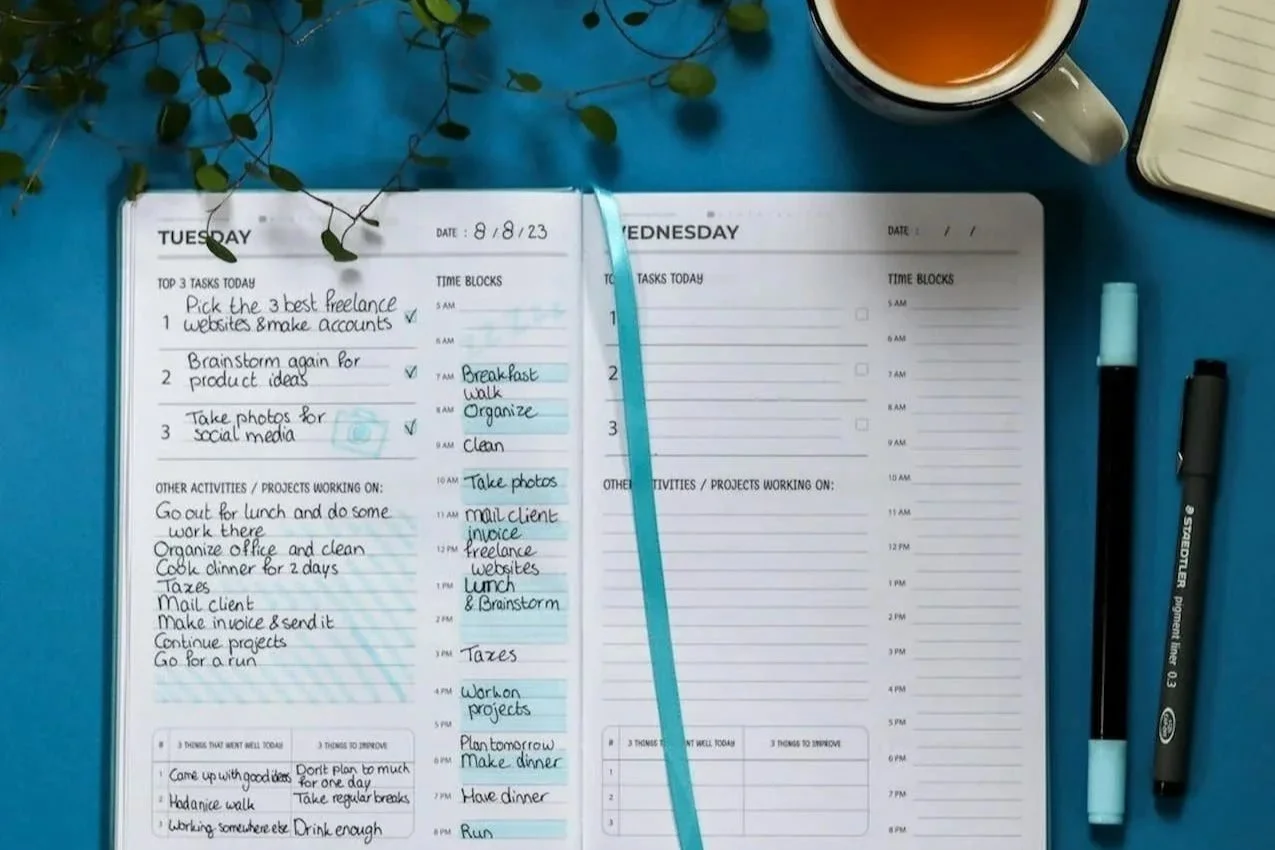 TUESDAY
DATE : 8/8/23
TOP 3 TASKS TODAY
1 Pick the 3 best freelance
websites & make accounts
2 Brainstorm again for
product ideas
3 Take photos for
social media
OTHER ACTIVITIES / PROJECTS WORKING ON:
Go out for lunch and do some
work there
Organize office and clean
Cook dinner for 2 days
Taxes
Mail client
Make invoice & send it
Continue projects
Go for a run
# 3 THINGS THAT WENT WELL TODAY 3 THINGS TO IMPROVE
1 Came up with good ideas Don't plan to much
for one day
2 Had a nice walk Take regular breaks
3 Working somewhere else Drink enough
TIME BLOCKS
5 AM
6 AM
7 AM Breakfast
walk
8 AM Organize
9 AM Clean
10 AM Take photos
11 AM Mail client
invoice
12 PM freelance
websites
1 PM Lunch
& Brainstorm
2 PM
3 PM Taxes
4 PM Work on
projects
5 PM
Plan tomorrow
6 PM Make dinner
7 PM Have dinner
8 PM Run
WEDNESDAY
DATE : / /
TASKS TODAY
1
2
3
ACTIVITIES / PROJECTS WORKING ON:
# 3 THINGS WENT WELL TODAY 3 THINGS TO IMPROVE
1
2
3
TIME BLOCKS
5 AM
6 AM
7 AM
8 AM
9 AM
10 AM
11 AM
12 PM
1 PM
2 PM
3 PM
4 PM
5 PM
6 PM
7 PM
8 PM
STAEDTLER pigment liner 0.3